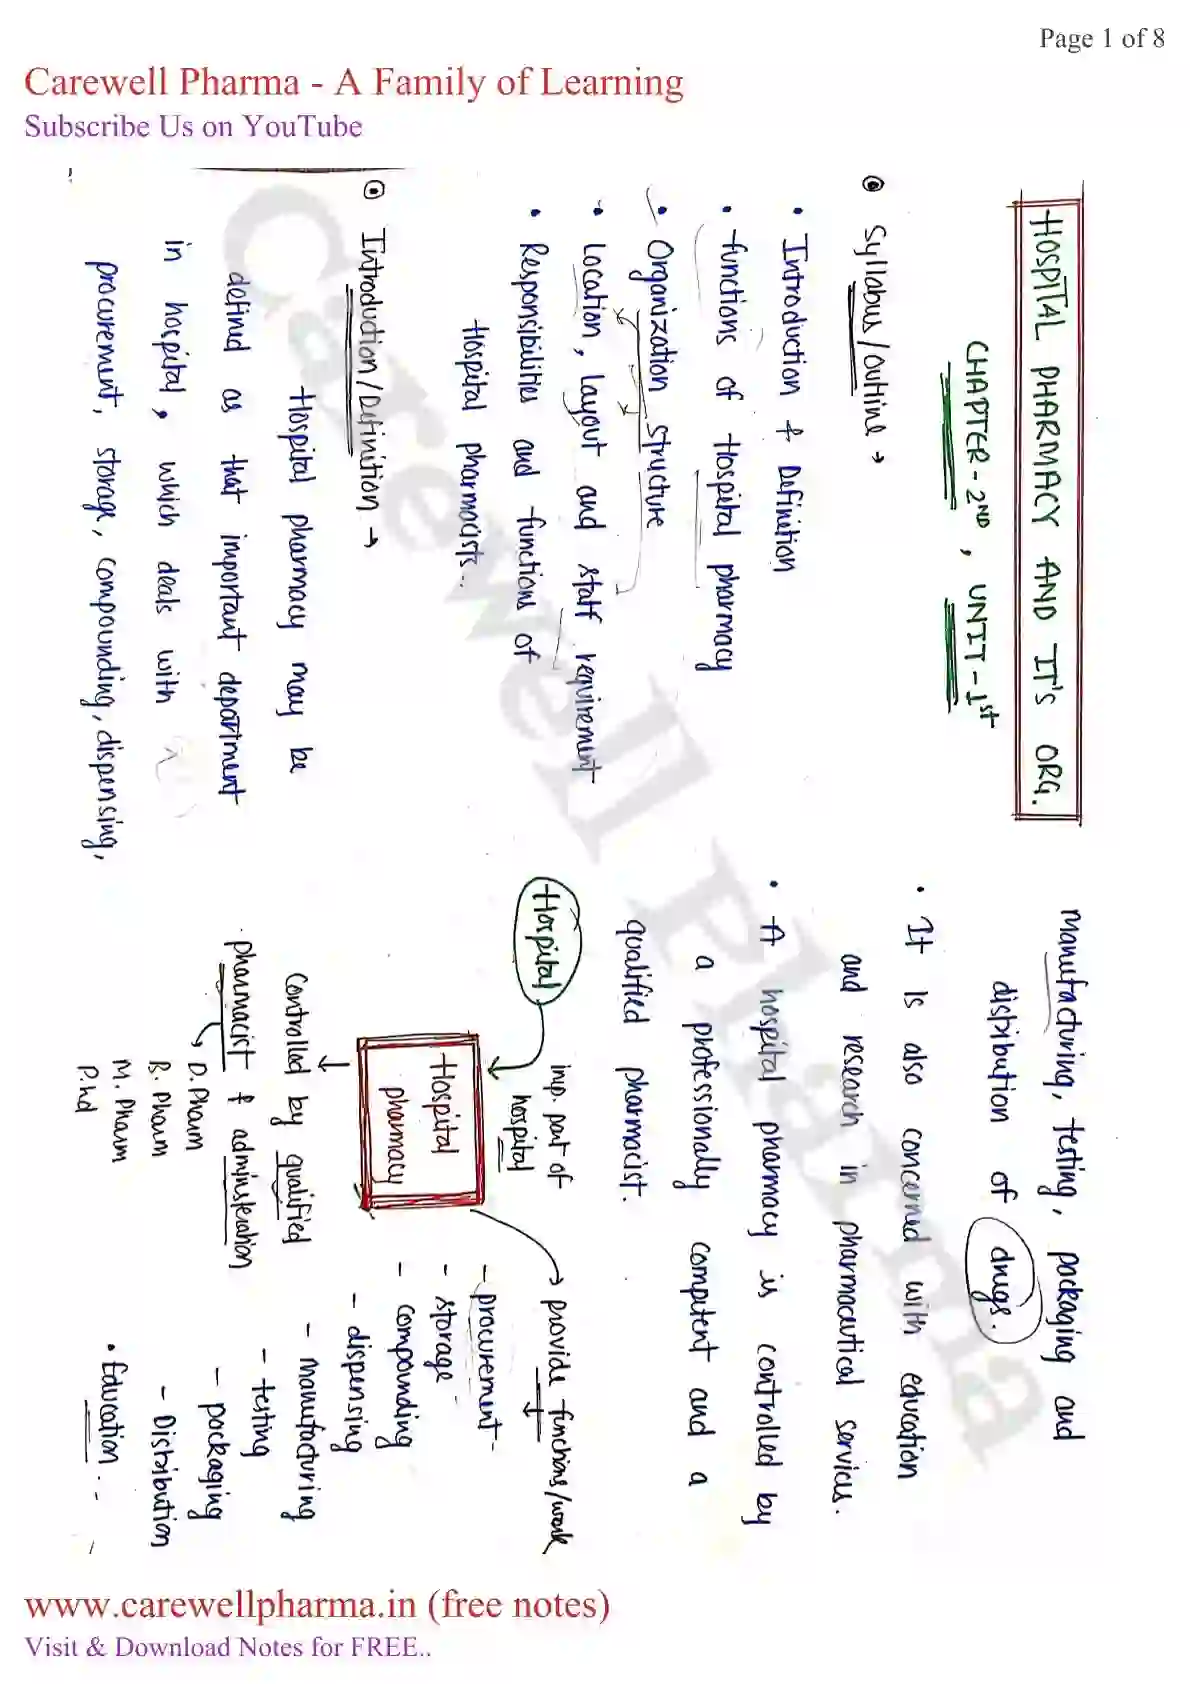 Page 1 of 8
Carewell Pharma - A Family of Learning
Subscribe Us on YouTube
HOSPITAL PHARMACY AND IT'S ORG.
CHAPTER - 2ND , UNIT - 1st
Syllabus/outline →
• Introduction & Definition
• functions of Hospital pharmacy
• Organization structure
• Location, layout and staff requirement
• Responsibilities and functions of
Hospital pharmacists..
Introduction/Definition →
Hospital pharmacy may be
defined as that important department
in hospital, which deals with
procurement, storage, compounding, dispensing,
manufacturing, testing, packaging and
distribution of drugs.
• It is also concerned with education
and research in pharmaceutical services.
• A hospital pharmacy is controlled by
a professionally competent and a
qualified pharmacist.
Hospital
imp. part of
hospital
Hospital
pharmacy
Controlled by qualified
pharmacist & administration
→ D. Pharm
B. Pharm
M. Pharm
P.hd
→ provide functions/work
- procurement-
- storage
- compounding
- dispensing
- manufacturing
- testing
- packaging
- Distribution
• Education..
Carewell Pharma
www.carewellpharma.in (free notes)
Visit & Download Notes for FREE..